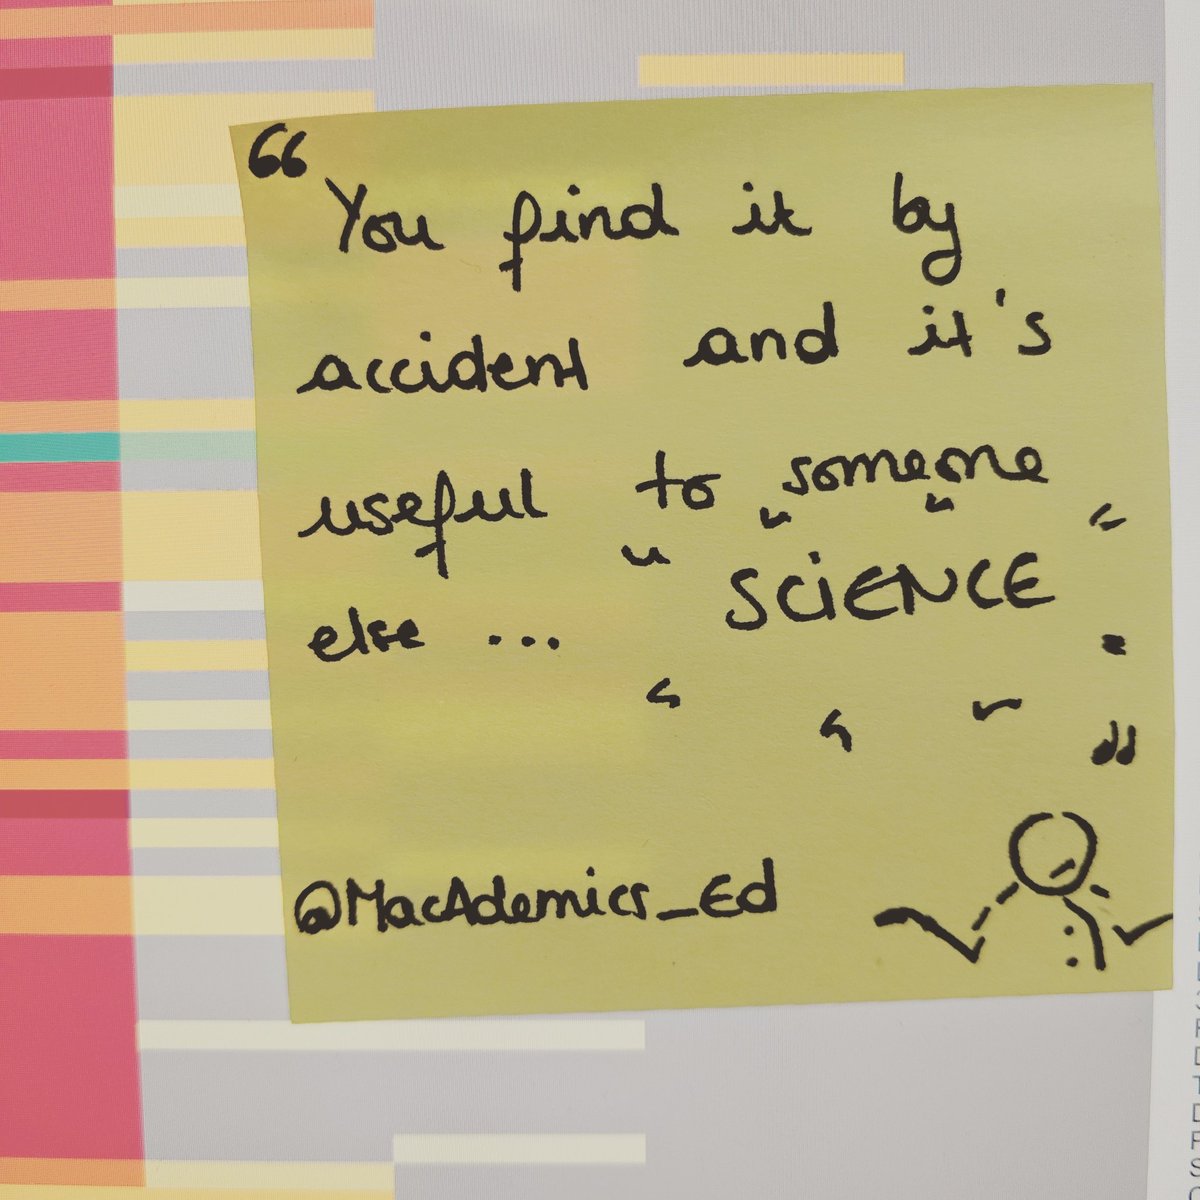 “ You find it by
accident and it's
useful to someone
else ... SCIENCE
”
@MacAdemics_Ed